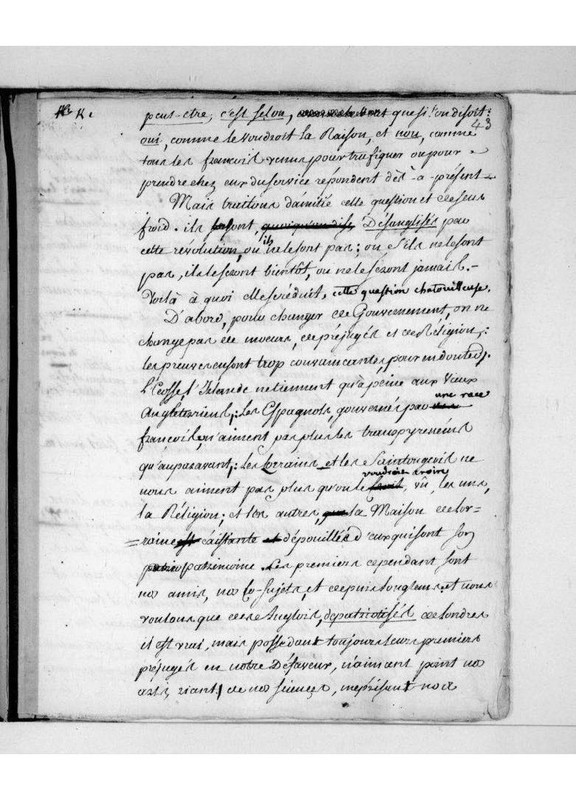 peut-être; c'est selon, et que si l'on disoit:
43
oui, comme le voudroit la Raison, et non, comme
tous les françois venus pour trafiquer ou pour
prendre chez eux du service repondent dès-à-présent.
Mais traitons d'amitié cette question et de sens
froid. ils sont, Désanglisés par
cette révolution, ou ils ne le sont pas; ou s'ils ne le sont
pas, ils le seront bientôt, ou ne le seront jamais.-
Voilà à quoi elle se réduit, cette question chatouilleuse.
D'abord, pour changer de Gouvernement, on ne
change pas de moeurs, de préjugés et de Religion;
les preuves en sont trop convaincantes, pour en douter.
L'Ecosse, l'Irlande ne tiennent qu'à peine aux Vieux
Angleterriens; les Espagnols, gouvernés par une race
françoise, n'aiment pas plus les transpyreneens
qu'auparavant; les Lorrains, et les Saintongeois ne
nous aiment pas plus qu'on le voudroit croire, vû, les uns,
la Religion; et les autres, la Maison de Lor-
=raine existante et dépouillée d'eux qui sont son
patrimoine. Les premiers cependant sont
nos amis, nos Co-sujets, et depuis longtems, et nous
voulons que des Anglois, depatriotisés de Londres
il est vrai, mais possedant toujours leurs premiers
préjugés en notre Défaveur, n'aimant point nos
arts, riant de nos sciences, méprisant nos